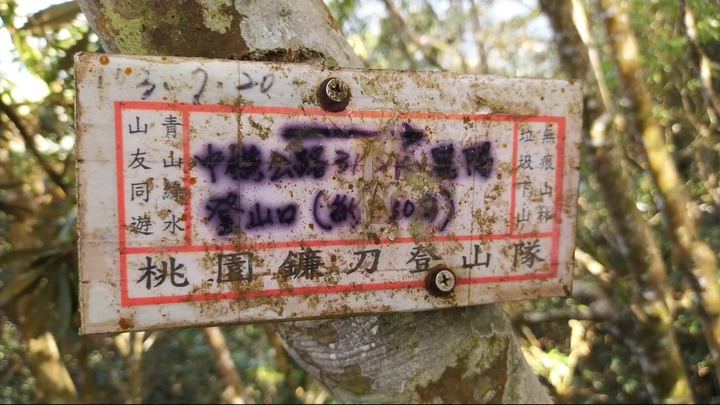 3.2.20
青山綠水
山友同遊
中橫公路
登山口(約
無痕山林
垃圾下山
桃園鐮刀登山隊